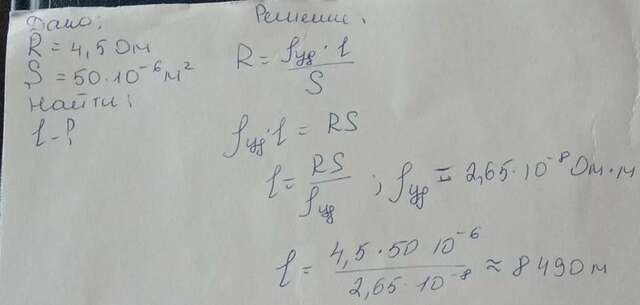 Дано:
R = 4,5 Ом
S = 50·10⁻⁶ м²
Найти:
l - ?
Решение.
R = ρуд·l / S
ρуд·l = RS
l = RS / ρуд ; ρуд = 2,65·10⁻⁸ Ом·м
l = 4,5·50 10⁻⁶ / 2,65·10⁻⁸ ≈ 8490 м